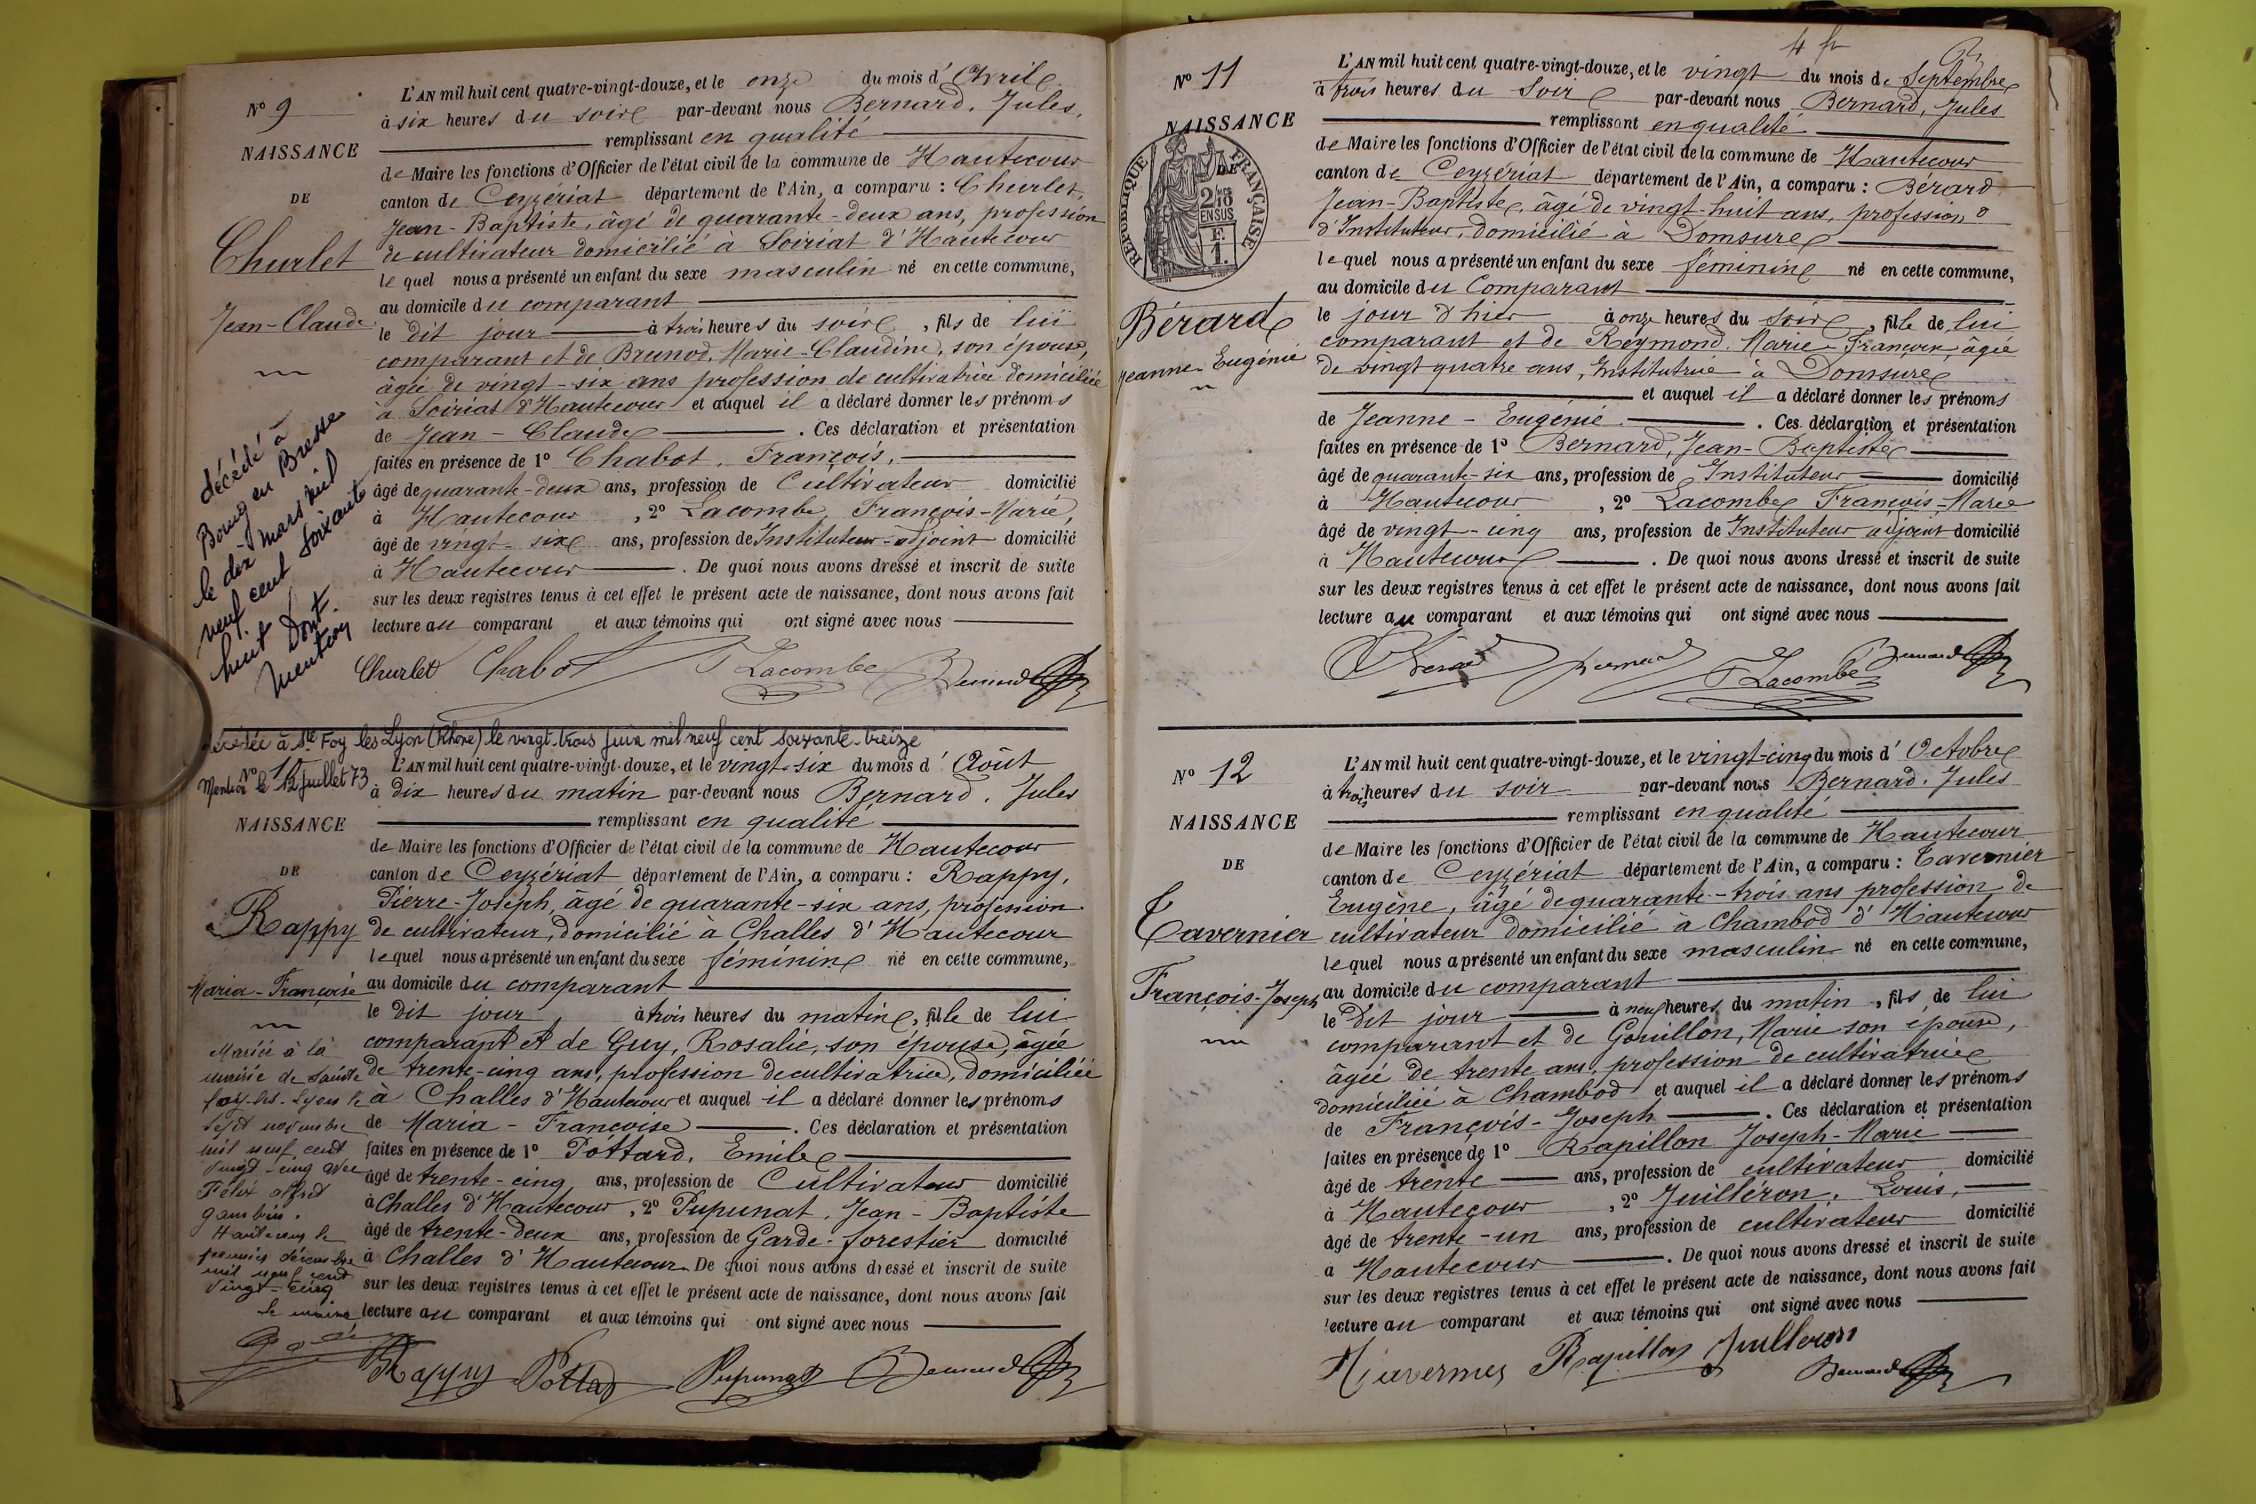 Nº 9
NAISSANCE
DE
Churlet
Jean-Claude
décédé à
Bourg en Bresse
le dix mars mil
neuf cent soixante
huit Dont
mention
L'AN mil huit cent quatre-vingt-douze, et le onze du mois d'Avril
à six heures du soir par-devant nous Bernard, Jules,
remplissant en qualité
de Maire les fonctions d'Officier de l'état civil de la commune de Hautecour
canton de Ceyzériat département de l'Ain, a comparu : Churlet,
Jean-Baptiste, âgé de quarante-deux ans, profession
de cultivateur domicilié à Soiriat d'Hautecour
lequel nous a présenté un enfant du sexe masculin né en cette commune,
au domicile du comparant
le dit jour à trois heures du soir, fils de lui
comparant et de Brunod, Marie-Claudine, son épouse,
âgée de vingt-six ans profession de cultivatrice domiciliée
à Soiriat d'Hautecour et auquel il a déclaré donner les prénoms
de Jean-Claude. Ces déclaration et présentation
faites en présence de 1º Chabot, François,
âgé de quarante-deux ans, profession de Cultivateur domicilié
à Hautecour, 2º Lacombe, François-Marie,
âgé de vingt-six ans, profession de Instituteur-adjoint domicilié
à Hautecour. De quoi nous avons dressé et inscrit de suite
sur les deux registres tenus à cet effet le présent acte de naissance, dont nous avons fait
lecture au comparant et aux témoins qui ont signé avec nous
Churlet Chabot F Lacombe Bernard
décédée à Ste Foy lès Lyon (Rhône) le vingt-trois juin mil neuf cent soixante-treize
Mention le 12 juillet 73
Nº
NAISSANCE
DE
Rappy
Maria-Françoise
Mariée à la
mairie de Sainte
foy-les-Lyon le
sept novembre
mil neuf cent
vingt-cinq avec
Félix alfred
gambin.
Hautecour le
premier décembre
mil neuf cent
vingt-cinq
le maire
L'AN mil huit cent quatre-vingt-douze, et le vingt-six du mois d'Août
à dix heures du matin par-devant nous Bernard, Jules
remplissant en qualité
de Maire les fonctions d'Officier de l'état civil de la commune de Hautecour
canton de Ceyzériat département de l'Ain, a comparu : Rappy,
Pierre-Joseph, âgé de quarante-six ans, profession
de cultivateur, domicilié à Challes d'Hautecour
lequel nous a présenté un enfant du sexe féminin né en cette commune,
au domicile du comparant
le dit jour, à trois heures du matin, fille de lui
comparant et de Guy, Rosalie, son épouse, âgée
de trente-cinq ans, profession de cultivatrice, domiciliée
à Challes d'Hautecour et auquel il a déclaré donner les prénoms
de Maria-Françoise. Ces déclaration et présentation
faites en présence de 1º Pottard, Emile
âgé de trente-cinq ans, profession de Cultivateur domicilié
à Challes d'Hautecour, 2º Pupunat, Jean-Baptiste
âgé de trente-deux ans, profession de Garde-forestier domicilié
à Challes d'Hautecour De quoi nous avons dressé et inscrit de suite
sur les deux registres tenus à cet effet le présent acte de naissance, dont nous avons fait
lecture au comparant et aux témoins qui ont signé avec nous
Rappy Pottard Pupunat Bernard
4 fr
Nº 11
NAISSANCE
DE
RÉPUBLIQUE FRANÇAISE
2/10 EN SUS
F.
1.
Bérard
Jeanne-Eugénie
L'AN mil huit cent quatre-vingt-douze, et le vingt du mois de Septembre
à trois heures du Soir par-devant nous Bernard, Jules
remplissant en qualité
de Maire les fonctions d'Officier de l'état civil de la commune de Hautecour
canton de Ceyzériat département de l'Ain, a comparu : Bérard
Jean-Baptiste, âgé de vingt-huit ans, profession
d'Instituteur, domicilié à Domsure
lequel nous a présenté un enfant du sexe féminin né en cette commune,
au domicile du Comparant
le jour d'hier à onze heures du Soir, fille de lui
comparant et de Reymond, Marie-Françoise, âgée
de vingt quatre ans, Institutrice à Domsure
et auquel il a déclaré donner les prénoms
de Jeanne-Eugénie. Ces déclaration et présentation
faites en présence de 1º Bernard, Jean-Baptiste
âgé de quarante-six ans, profession de Instituteur domicilié
à Hautecour, 2º Lacombe François-Marie
âgé de vingt-cinq ans, profession de Instituteur adjoint domicilié
à Hautecour. De quoi nous avons dressé et inscrit de suite
sur les deux registres tenus à cet effet le présent acte de naissance, dont nous avons fait
lecture au comparant et aux témoins qui ont signé avec nous
Bérard Bernard F Lacombe Bernard
Nº 12
NAISSANCE
DE
Tavernier
François-Joseph
L'AN mil huit cent quatre-vingt-douze, et le vingt-cinq du mois d'Octobre
à trois heures du soir par-devant nous Bernard, Jules
remplissant en qualité
de Maire les fonctions d'Officier de l'état civil de la commune de Hautecour
canton de Ceyzériat département de l'Ain, a comparu : Tavernier
Eugène, âgé de quarante-trois ans profession de
cultivateur domicilié à Chambod d'Hautecour
lequel nous a présenté un enfant du sexe masculin né en cette commune,
au domicile du comparant
le dit jour à neuf heures du matin, fils de lui
comparant et de Gouillon, Marie son épouse,
âgée de trente ans, profession de cultivatrice
domiciliée à Chambod et auquel il a déclaré donner les prénoms
de François-Joseph. Ces déclaration et présentation
faites en présence de 1º Rapillon Joseph-Marie
âgé de trente ans, profession de cultivateur domicilié
à Hautecour, 2º Juilléron, Louis,
âgé de trente-un ans, profession de cultivateur domicilié
à Hautecour. De quoi nous avons dressé et inscrit de suite
sur les deux registres tenus à cet effet le présent acte de naissance, dont nous avons fait
lecture au comparant et aux témoins qui ont signé avec nous
Tavernier Rapillon Juilleron Bernard